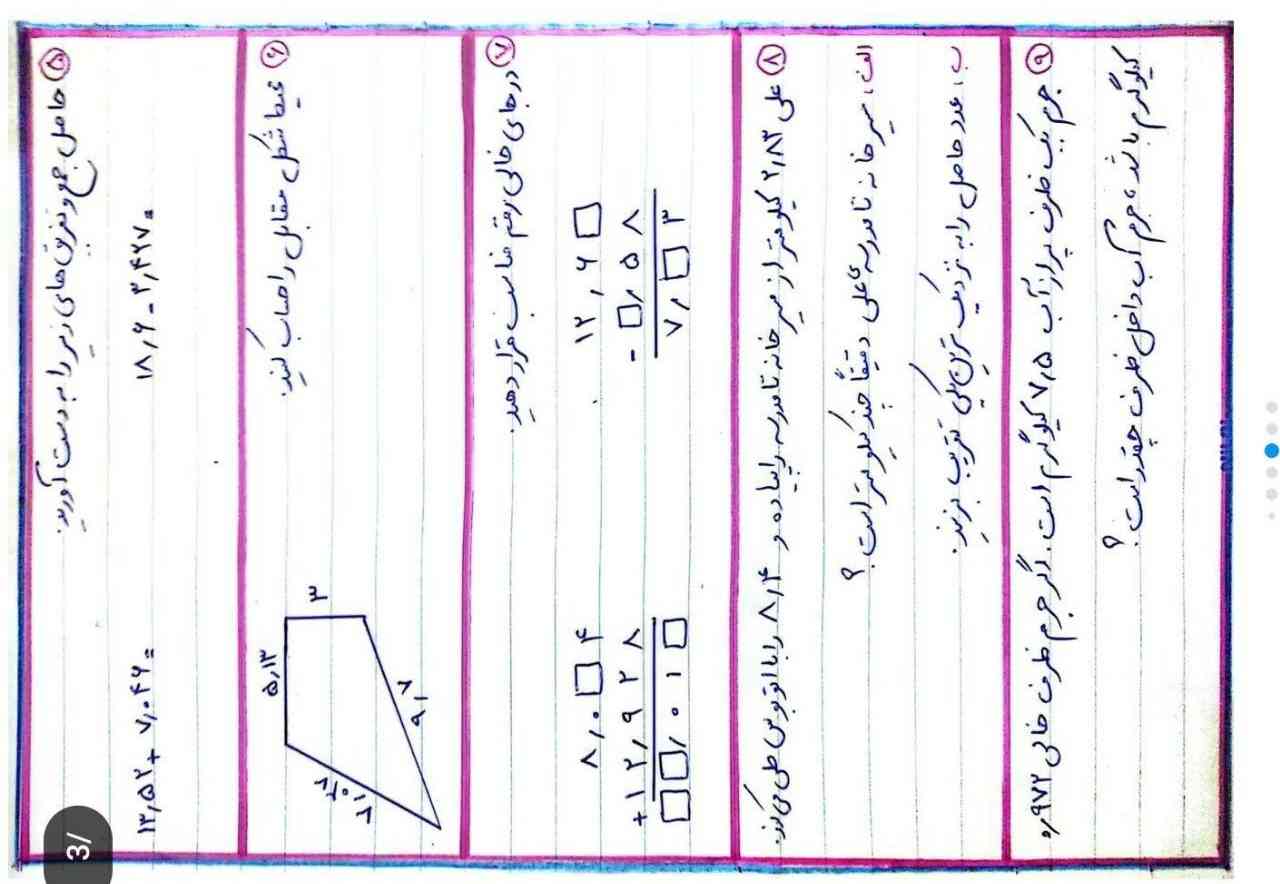 ۵ حاصل جمع و تفریق های زیر را به دست آورید.
۱۳,۵۲ + ۷,۰۴۶ =
۱۸,۶ - ۲,۴۲۷ =
۶ محیط شکل مقابل را حساب کنید.
۵,۱۳
۳
۹,۷
۷ در جای خالی رقم مناسب قرار دهید.
۸,۰□۴
+۱۲,۹۲۸
□□,۰۱□
۱۲,۶□
- □,۵۸
۷,□۳
۸ علی ۲,۸۳ کیلومتر از مسیر خانه تا مدرسه را پیاده و ۸,۴ را با اتوبوس طی می کند.
الف) مسیر خانه تا مدرسه ی علی دقیقاً چند کیلومتر است؟
ب) عدد حاصل را به نزدیک ترین یکی تقریب بزنید.
۹ جرم یک ظرف پر از آب ۷,۵ کیلوگرم است. اگر جرم ظرف خالی ۰,۹۷۲
کیلوگرم باشد، جرم آب داخل ظرف چقدر است؟
3/